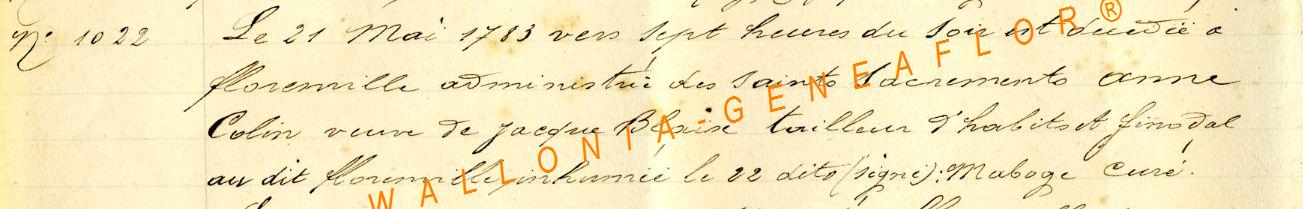 N° 1022 Le 21 Mai 1783 vers sept heures du soir est décédée à
florenville administrée des saints sacrements anne
Colin veuve de jacque Blaise tailleur d'habits et
au dit florenville, inhumée le 22 dito (signé): Maboge curé.
WALLONIA-GENEAFLOR®